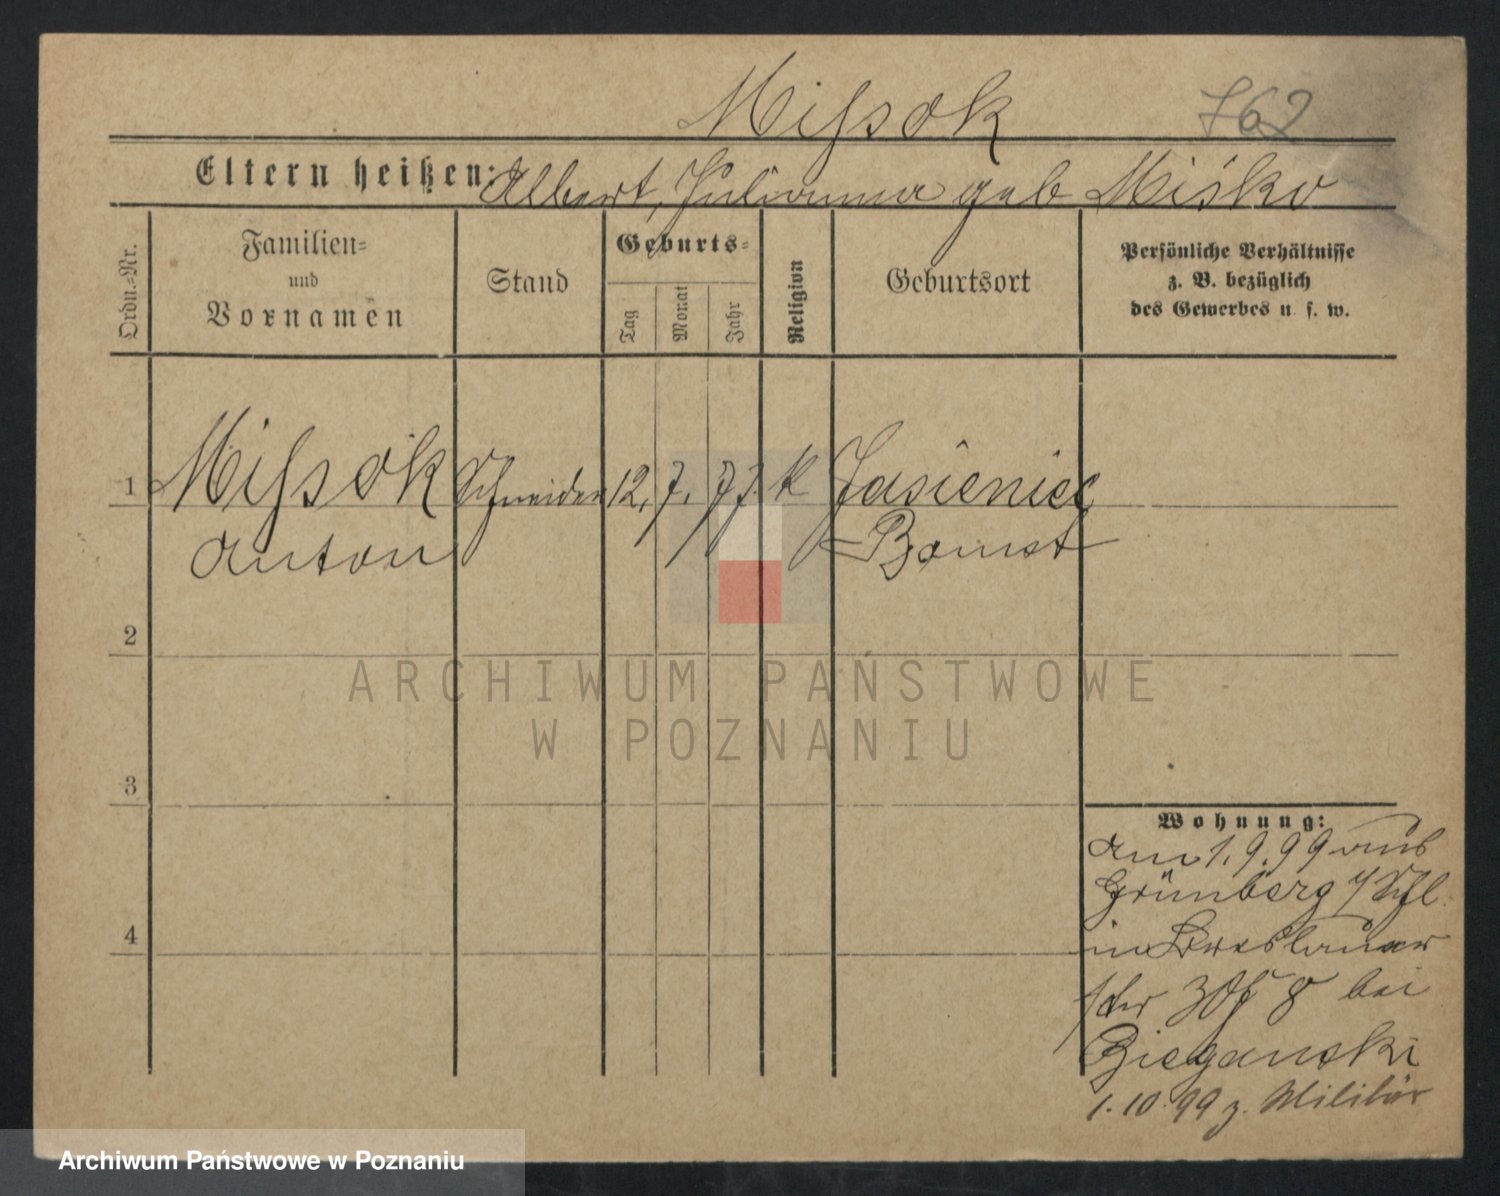 Mißsok 762
Eltern heißen: Albert, Julianna geb Miśko
Ordn.=Nr.
Familien=
und
Vornamen
Stand
Geburts=
Tag
Monat
Jahr
Religion
Geburtsort
Persönliche Verhältnisse
z. B. bezüglich
des Gewerbes u. s. w.
1 Mißsok Schneider 12. 7. 77. k Jasieniec
Anton Bomst
2
3
4
Wohnung:
am 1.9.99 aus
Grünberg i/Schl.
in Breslauer
str 8 bei
Bieganski
1.10.99 z. Militär
ARCHIWUM PAŃSTWOWE
W POZNANIU
Archiwum Państwowe w Poznaniu